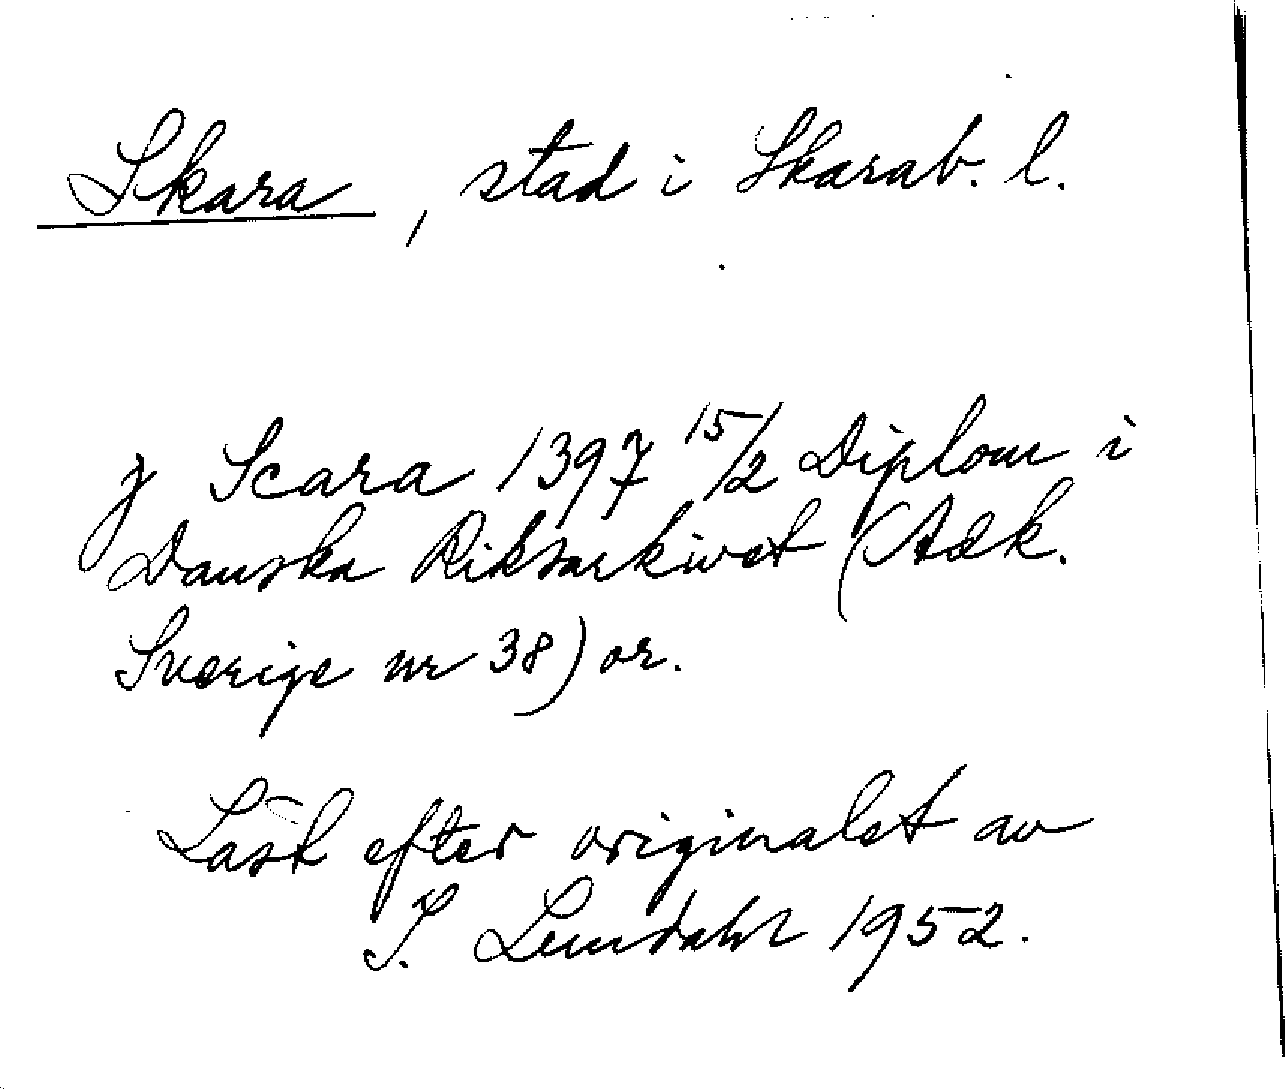 Skara, stad i Skarab. l.
j Scara 1397 15/2 Diplom i
Danska Riksarkivet (Aldk.
Sverige nr 38) or.
Läst efter originalet av
I. Lundahl 1952.